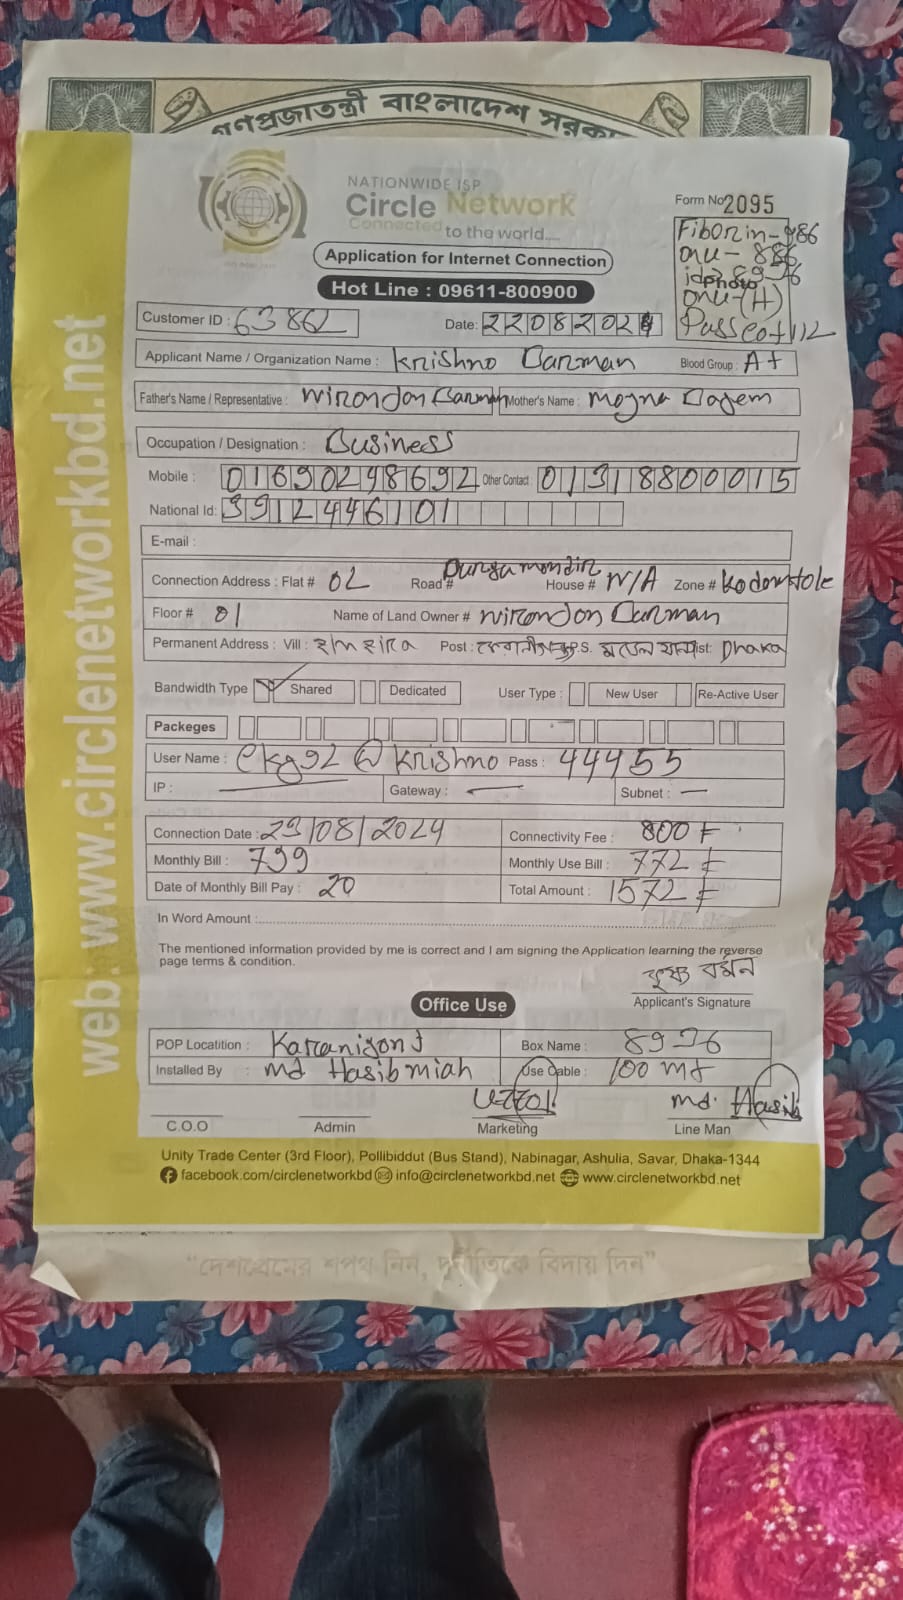 গণপ্রজাতন্ত্রী বাংলাদেশ সরকা
NATIONWIDE ISP
Circle Network
Connected to the world....
Application for Internet Connection
Hot Line : 09611-800900
Form No 2095
onu - 886
onu-(H)
Customer ID : 63862
Date: 22082024
Applicant Name / Organization Name : Krishno Barman Blood Group : A+
Father's Name / Representative : Nirondon Barman Mother's Name :
Occupation / Designation : Business
Mobile : 01690298692 Other Contact : 01318800015
National Id: 3912446101
E-mail :
Connection Address : Flat # 02 Road # Durga mondir House # N/A Zone # Kodomtole
Floor # 01 Name of Land Owner # Nirondon Barman
Permanent Address : Vill : Post : P.S. মডেল থানা Dist: Dhaka
Bandwidth Type Shared Dedicated User Type : New User Re-Active User
Packeges
User Name : ekg92@krishno Pass : 44455
IP : Gateway : Subnet :
Connection Date : 23/08/2024 Connectivity Fee : 800
Monthly Bill : 799 Monthly Use Bill : 772
Date of Monthly Bill Pay : 20 Total Amount : 1572
In Word Amount :
The mentioned information provided by me is correct and I am signing the Application learning the reverse
page terms & condition.
কৃষ্ণ বর্মন
Applicant's Signature
Office Use
POP Locatition : Karanigonj Box Name :
Installed By : md Hasib miah Use Cable : 100 mt
Uzzol md. Hasib
C.O.O Admin Marketing Line Man
Unity Trade Center (3rd Floor), Pollibiddut (Bus Stand), Nabinagar, Ashulia, Savar, Dhaka-1344
facebook.com/circlenetworkbd info@circlenetworkbd.net www.circlenetworkbd.net
web: www.circlenetworkbd.net
"দেশপ্রেমের শপথ নিন, দুর্নীতিকে বিদায় দিন"